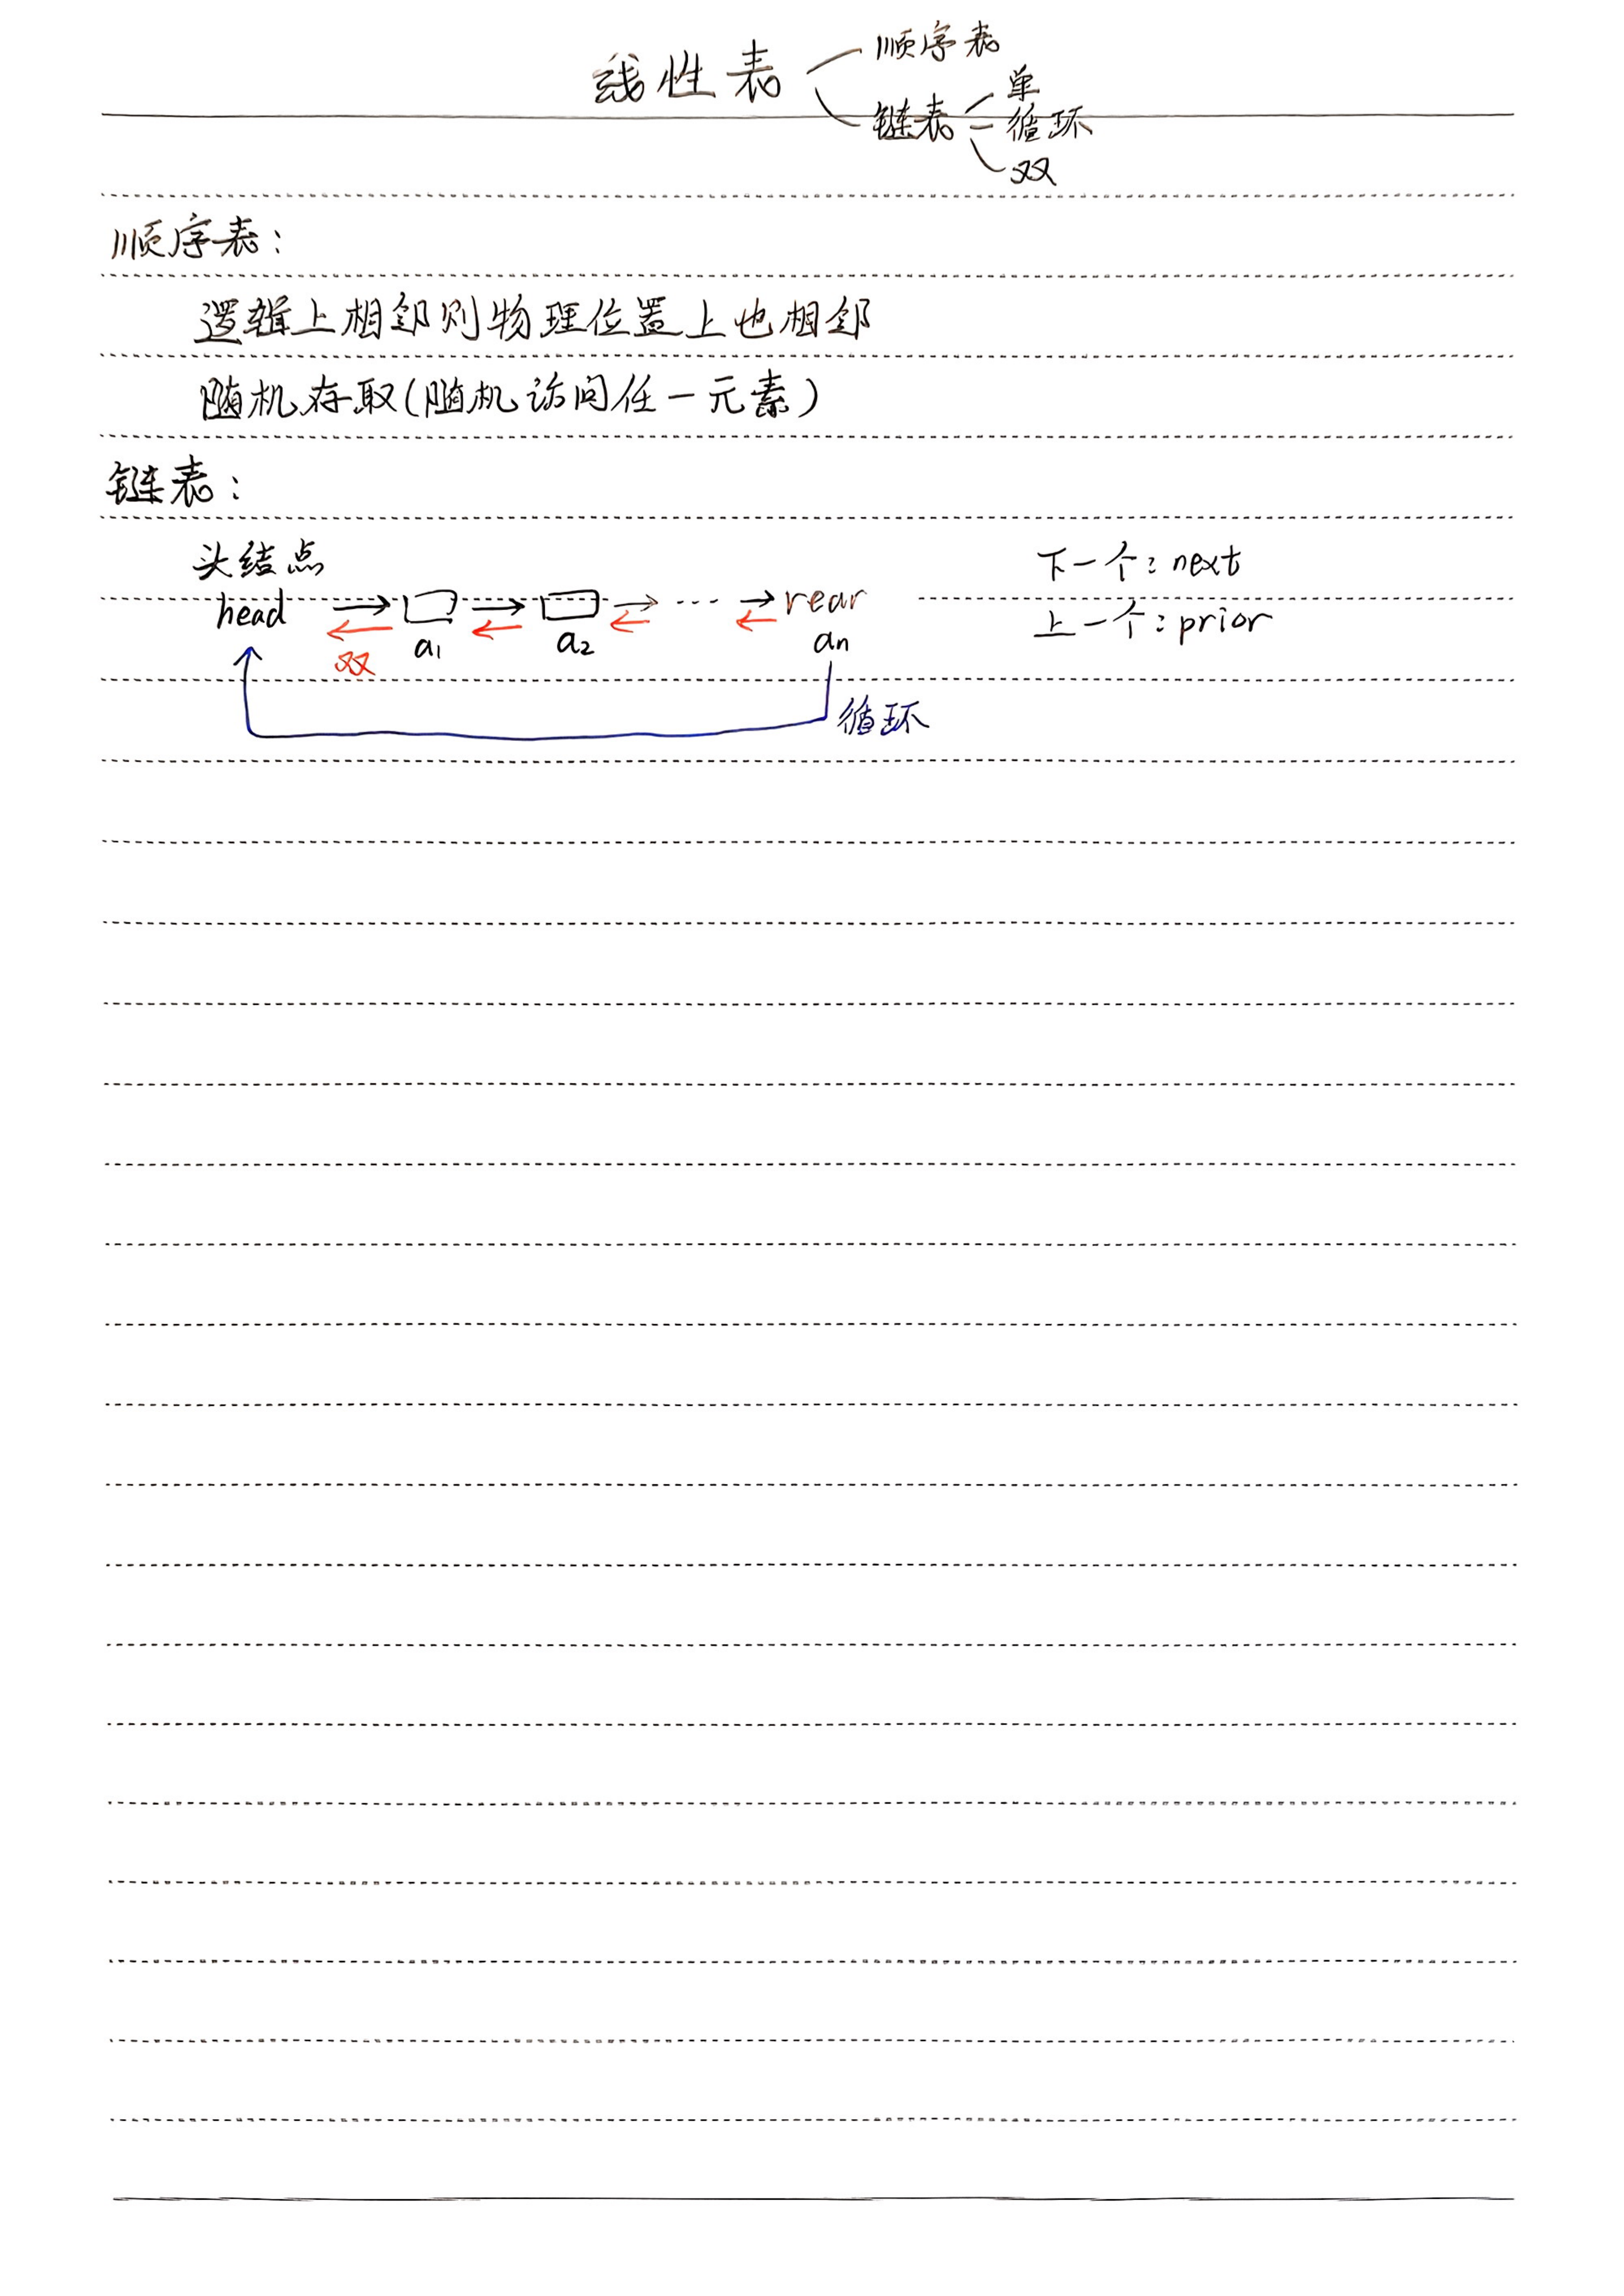 线性表
顺序表
链表
单
循环
双
顺序表：
逻辑上相邻则物理位置上也相邻
随机存取(随机访问任一元素)
链表：
头结点
head → □ → □ → ··· → rear
双 a1 a2 an
循环
下一个：next
上一个：prior